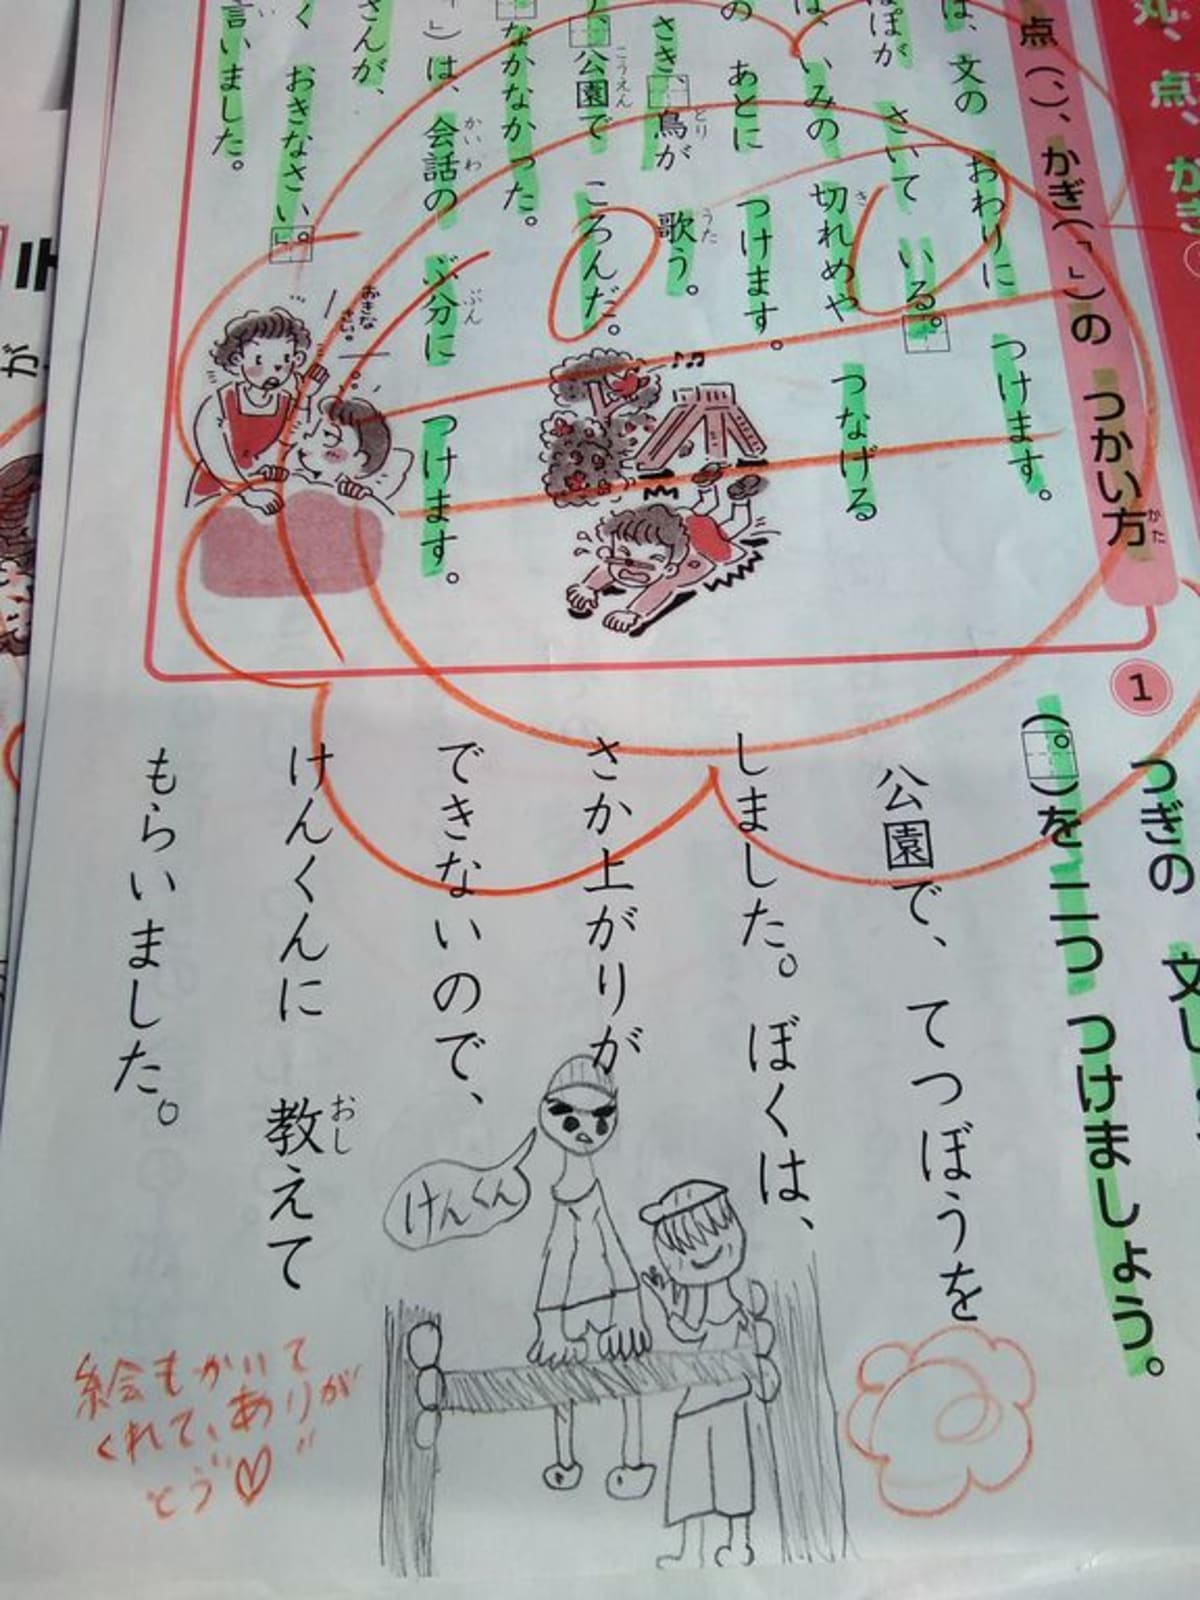 丸、点、かぎ
点(、)、かぎ(「」)の つかい方
かた
は、文の おわりに つけます。
ぽぽが さいて いる。
は、いみの 切れめや つなげる
き
の あとに つけます。
さき、鳥が 歌う。
とり
うた
公園で ころんだ。
こうえん
なかなかった。
」)は、会話の ぶ分に つけます。
かいわ
ぶん
さんが、
く おきなさい。」
言いました。
い
おきな
さい。
1
つぎの
(。)を 二つ つけましょう。
公園で、てつぼうを
しました。ぼくは、
さか上がりが
できないので、
けんくんに 教えて
おし
もらいました。
けんくん
絵もかいて
くれて、ありが
とう♡
が